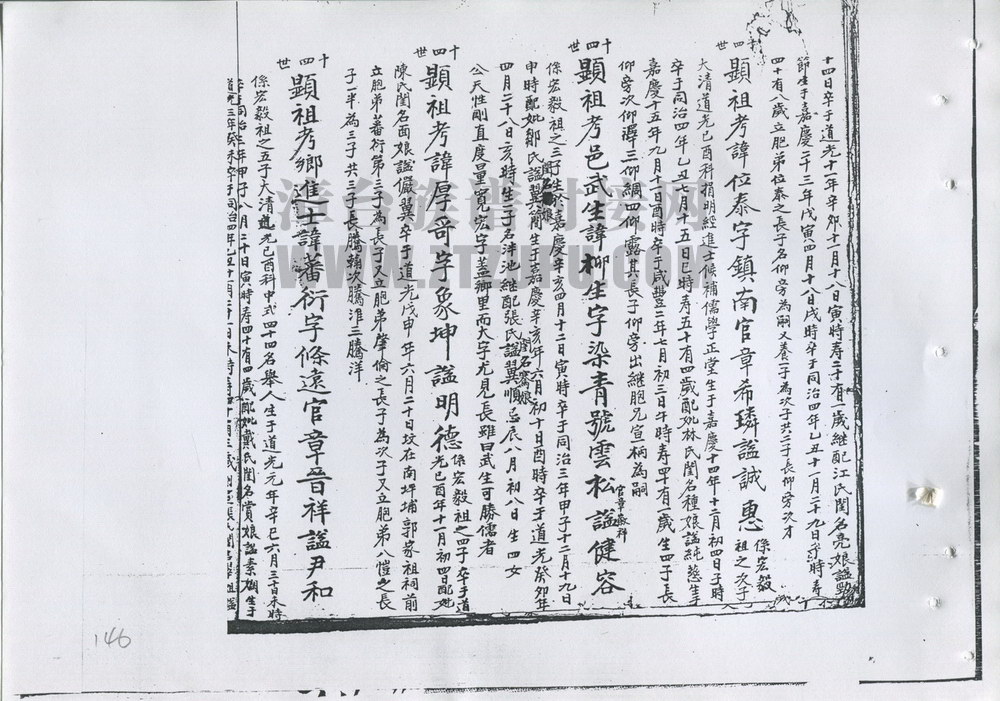 十四日卒于道光十一年辛卯十一月十八日寅時寿二十有一歲継配江氏閨名亮娘謚勤
節生于嘉慶二十三年戊寅四月十八日戌時卒于同治四年乙丑十一月二十九日亥時寿
四十有八歲立胞弟位泰之長子名仰旁為嗣又養一子為次子共二子長仰旁次才
十四世
顯祖考諱位泰字鎮南官章希璘謚誠惠
係宏毅祖之次子
大清道光己酉科捐明經進士候補儒學正堂生于嘉慶十四年十二月初四日子時
卒于同治四年乙丑七月十五日巳時寿五十有四歲配妣林氏閨名種娘謚純慈生
嘉慶十五年九月十一日酉時卒于咸豐二年七月初三日午時寿四十有一歲生四子長
仰旁次仰澤三仰綢四仰露其長子仰旁出継胞兄宣柄為嗣
十四世
顯祖考邑武生諱柳生字染青號雲松謚健容
官章 科
係宏毅祖之三子生於嘉慶辛亥四月十二日寅時卒于同治三年甲子十二月十九日
申時配妣鄒氏謚翼簡生于嘉慶辛亥年六月初十日酉時卒于道光癸卯年
四月二十八日亥時生一子名泮池継配張氏謚翼順忌辰八月初八日生四女
閨名鶯娘
公天性剛直度量寬宏字蓋鄉里而大字尤見長雖曰武生可勝儒者
十四世
顯祖考諱厚哥字象坤謚明德
係宏毅祖之四子卒于道
光己酉年十一月初四日配妣
陳氏閨名面娘謚儼翼卒于道光戊申年六月二十日坟在南坪埔郭家祖祠前
立胞弟蕃衍第三子為長子又立胞弟肇倫之長子為次子又立胞弟八愷之長
子一半為三子共三子長騰翰次騰淮三騰洋
十四世
顯祖考鄉進士諱蕃衍字條遠官章晉祥謚尹和
係宏毅祖之五子大清道光己酉科中式四十四名舉人生于道光元年辛巳六月三十日未時
卒于同治三年甲子八月二十日寅時寿四十有四歲配妣戴氏閨名賞娘謚素媚生于
道光三年癸未卒于同治四年乙丑十二月二十一日未時
146
津台族谱对接网
WWW.